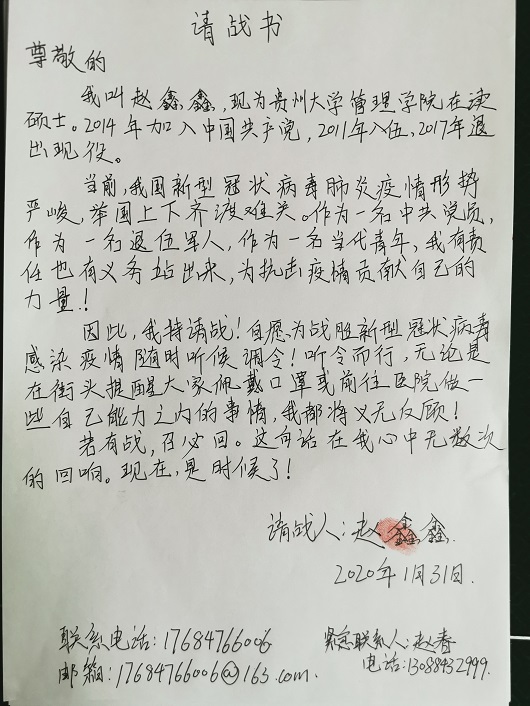 请战书
尊敬的
我叫赵鑫鑫，现为贵州大学管理学院在读
硕士。2014年加入中国共产党，2011年入伍，2017年退
出现役。
当前，我国新型冠状病毒肺炎疫情形势
严峻，举国上下齐渡难关。作为一名中共党员，
作为一名退伍军人，作为一名当代青年，我有责
任也有义务站出来，为抗击疫情贡献自己的
力量！
因此，我特请战！自愿为战胜新型冠状病毒
感染疫情随时听候调令！听令而行，无论是
在街头提醒大家佩戴口罩或前往医院做一
些自己能力之内的事情，我都将义无反顾！
若有战，召必回。这句话在我心中无数次
的回响。现在，是时候了！
请战人：赵鑫鑫
2020年1月31日.
联系电话：17684766006
邮箱：17684766006@163.com.
紧急联系人：赵春
电话：13088432999.